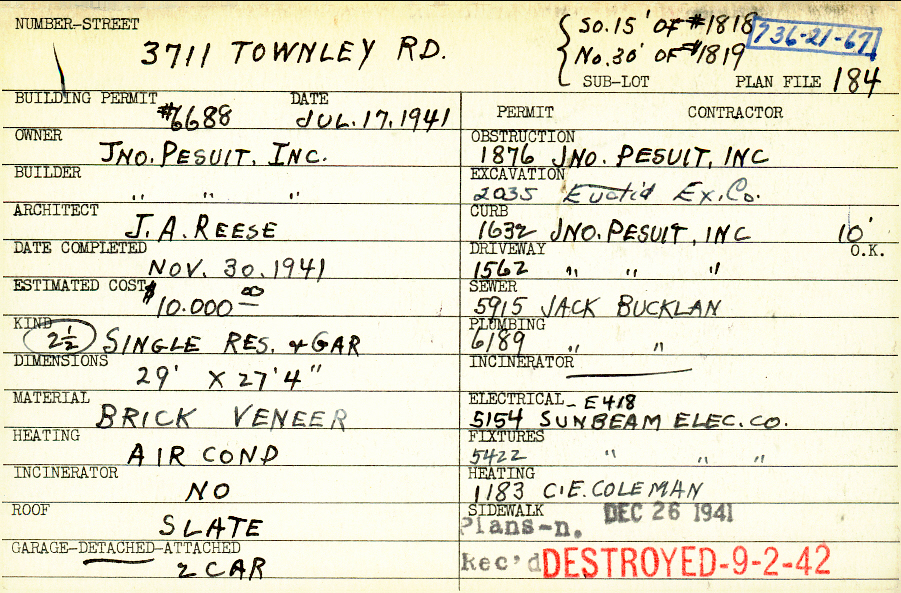 NUMBER-STREET
3711 TOWNLEY RD.
SO. 15' OF #1818
NO. 30' OF #1819
736-21-67
SUB-LOT PLAN FILE 184
BUILDING PERMIT DATE
#6688 JUL. 17. 1941
OWNER
JNO. PESUIT, INC.
BUILDER
" " "
ARCHITECT
J. A. REESE
DATE COMPLETED
NOV. 30. 1941
ESTIMATED COST
$10.000 00
KIND
2 1/2 SINGLE RES. & GAR
DIMENSIONS
29' X 27'4"
MATERIAL
BRICK VENEER
HEATING
AIR COND
INCINERATOR
NO
ROOF
SLATE
GARAGE-DETACHED-ATTACHED
2 CAR
PERMIT CONTRACTOR
OBSTRUCTION
1876 JNO. PESUIT, INC
EXCAVATION
2035 Euclid Ex. Co.
CURB
1632 JNO. PESUIT, INC 10'
DRIVEWAY O.K.
1562 " " "
SEWER
5915 JACK BUCKLAN
PLUMBING
6189 " "
INCINERATOR
ELECTRICAL - E418
5154 SUNBEAM ELEC. CO.
FIXTURES
5422 " " "
HEATING
1183 C.E. COLEMAN
SIDEWALK DEC 26 1941
Plans-n.
Rec'd DESTROYED-9-2-42